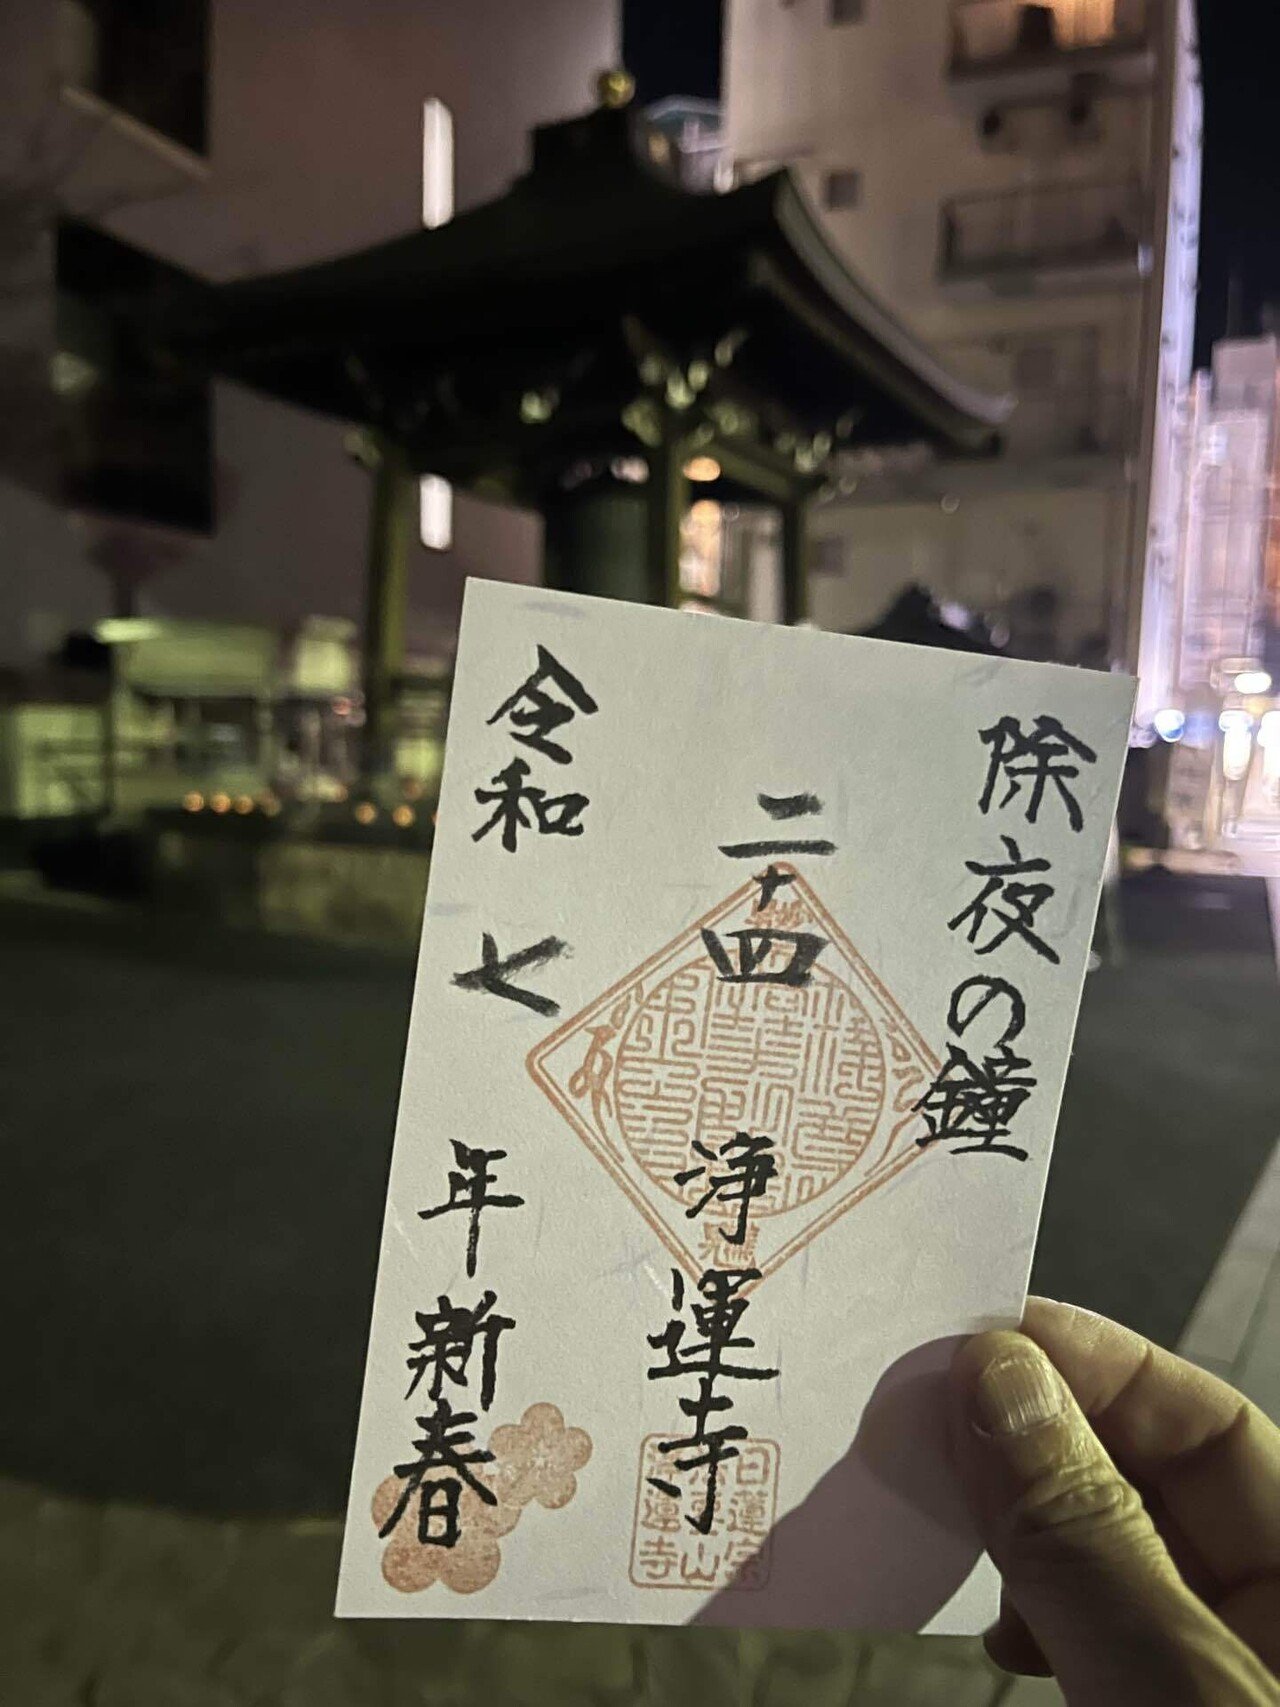 除夜の鐘
二十四 浄運寺
令和 七 年 新春
日蓮宗
山
浄運寺